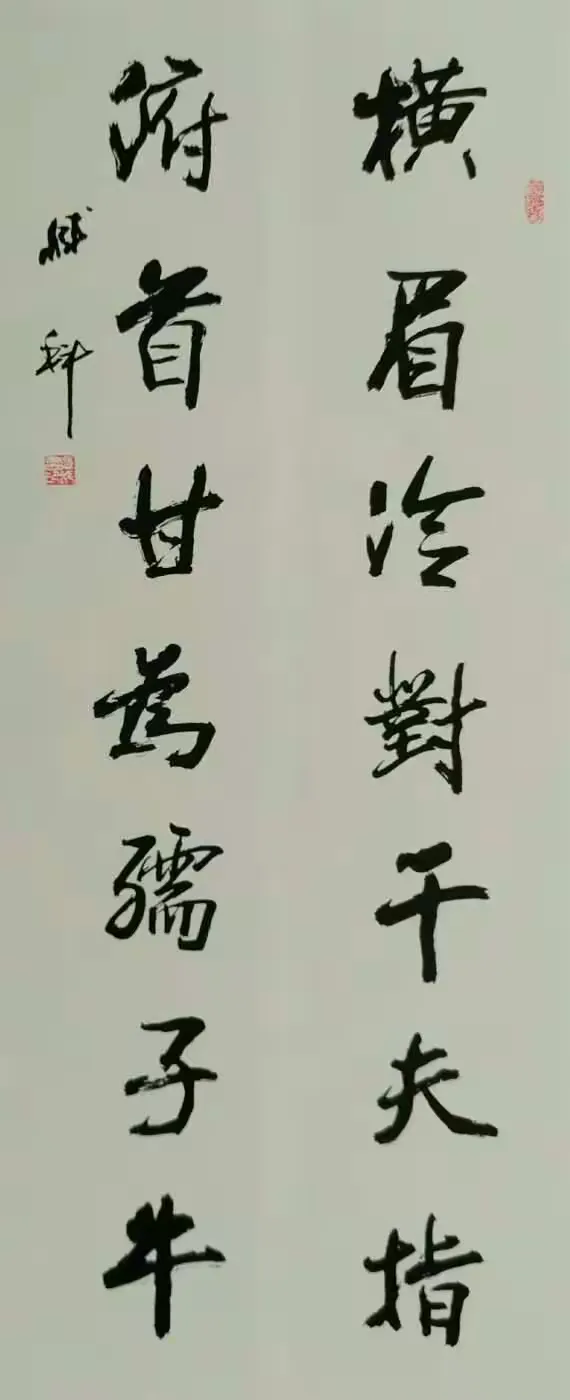 横眉冷對千夫指
俯首甘為孺子牛
科